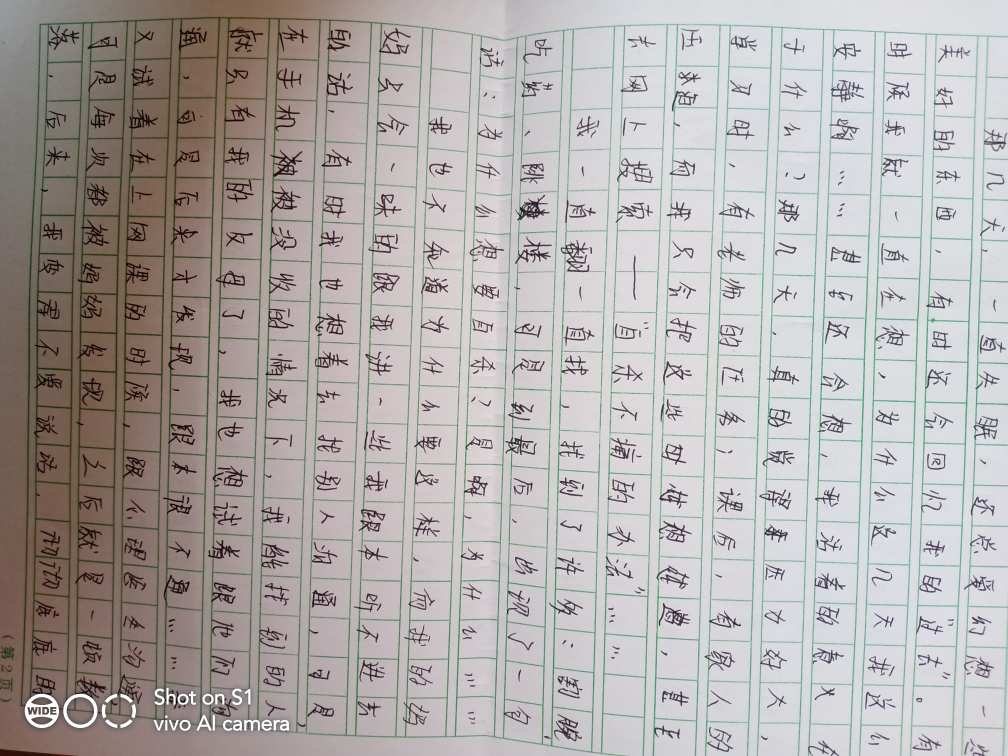 那几天，一直失眠，还总爱幻想一些
美好的东西，有时还会回忆我的“过去”。有
时候我就一直在想，为什么这几天我这么
安静啊……甚至还会想，我活着的意义在
于什么？那几天，真的觉得压力好大，
时，有老师的任务；课后，有家人的
压迫，而我只会把这些，甚至
去网上搜索——“自杀不痛的办法”……
我一直翻一直找，找到了许多：割腕，
吃药、跳楼，可是到最后，出现了一句
话：为什么想要自杀？是啊，为什么……
我也不知道为什么要这样，而我的妈
妈只会一味的跟我讲一些我跟本听不进去
的话，有时我也想着去找别人沟通，可是
在手机被没收的情况下，我能找到的人，
就只有我的父母了，我也想试着跟他们沟
通，可是后来才发现，跟本说不通……我
又试着在上网课的时候，跟心理医生沟通，
可是每次都被妈妈发现，之后就是一顿数
落，后来，我变得不爱说话，的
（第2页）
WIDE
Shot on S1
vivo AI camera